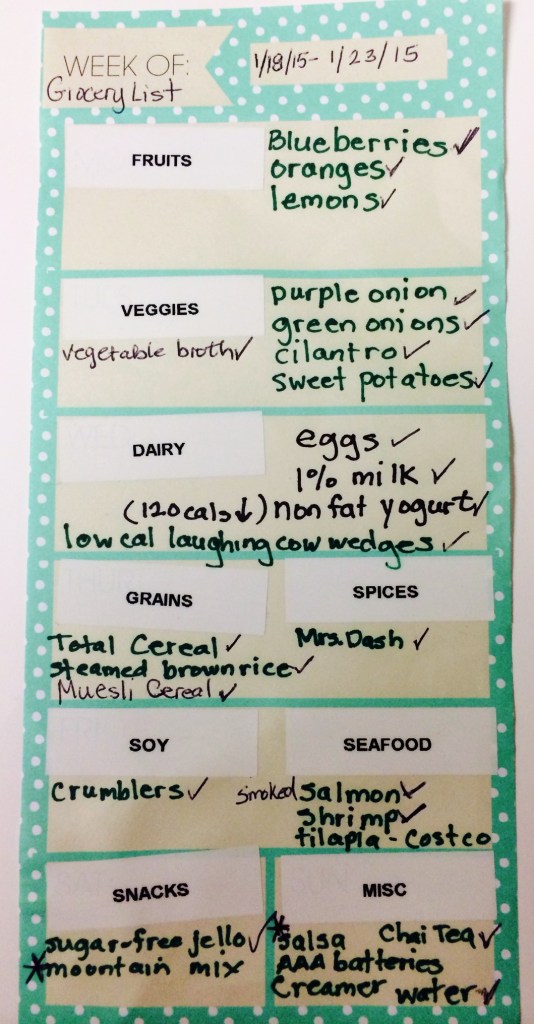 WEEK OF:
1/18/15- 1/23/15
Grocery List
FRUITS
Blueberries ✓
oranges ✓
lemons ✓
VEGGIES
vegetable broth ✓
purple onion ✓
green onions ✓
cilantro ✓
sweet potatoes ✓
DAIRY
eggs ✓
1% milk ✓
(120cals↓) non fat yogurt ✓
low cal laughing cow wedges ✓
GRAINS
Total Cereal ✓
steamed brown rice ✓
Muesli Cereal ✓
SPICES
Mrs. Dash ✓
SOY
Crumblers ✓
SEAFOOD
smoked salmon ✓
shrimp ✓
tilapia - Costco
SNACKS
sugar-free jello ✓
*moontain mix
MISC
*salsa Chai Tea ✓
AAA batteries
Creamer water ✓